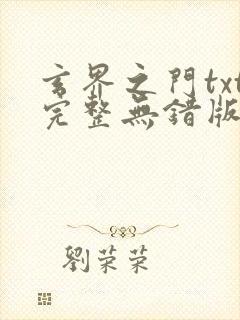 玄界之門txt
完整無錯版
劉荣荣